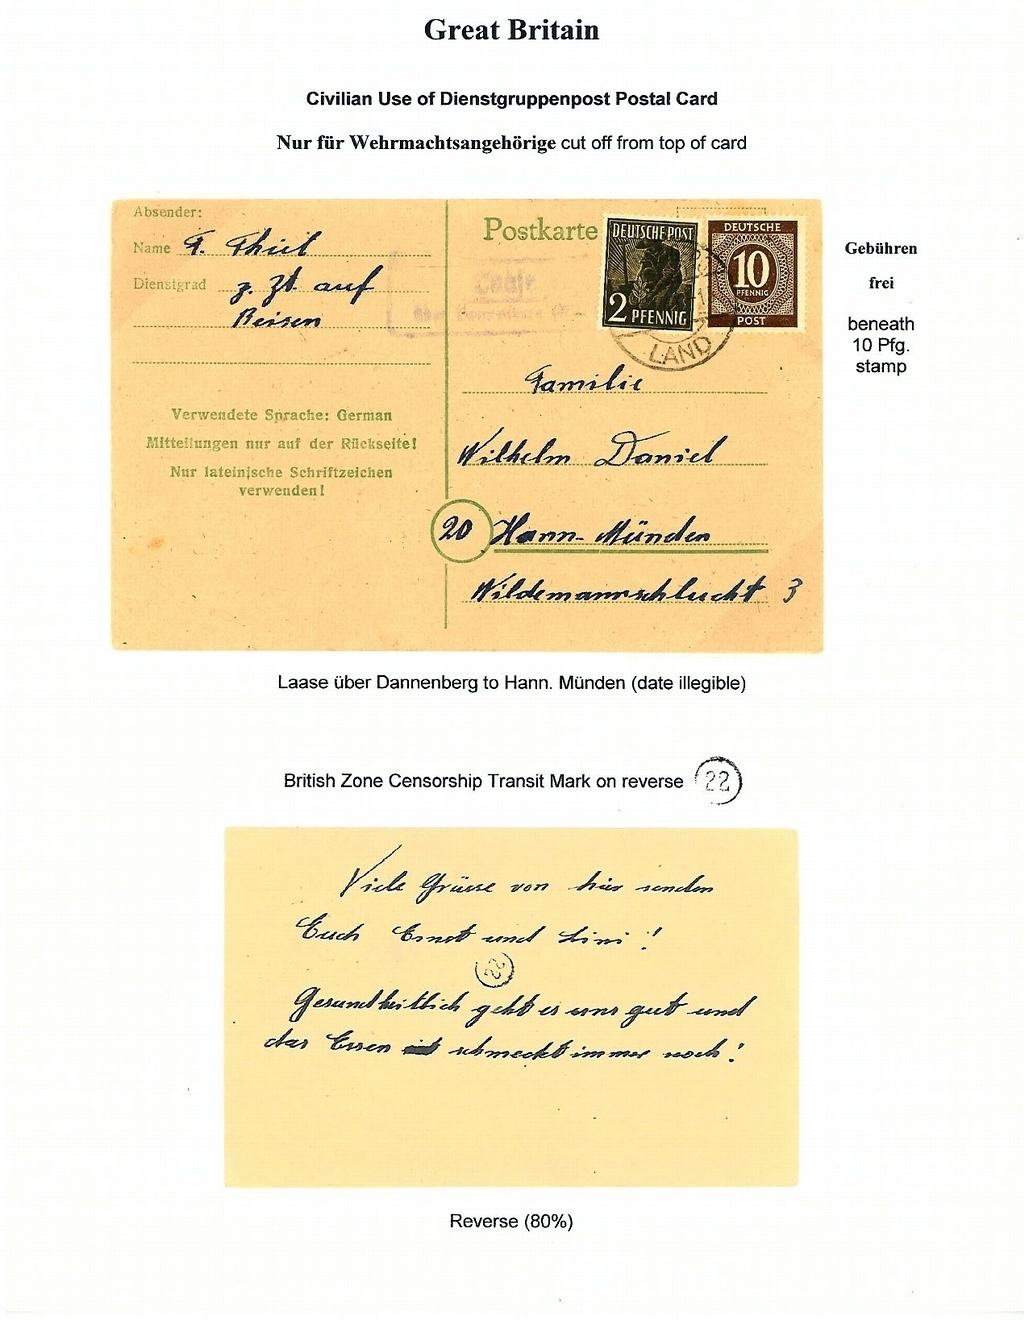 Great Britain
Civilian Use of Dienstgruppenpost Postal Card
Nur für Wehrmachtsangehörige cut off from top of card
Absender:
Name F. Thiel
Dienstgrad z. Zt. auf
Reisen
Postkarte
Laase
DEUTSCHE POST
2 PFENNIG
DEUTSCHE
10
PFENNIG
POST
LAND
Gebühren
frei
beneath
10 Pfg.
stamp
Familie
Wilhelm Daniel
20 Hann-Münden
Wildemannschlucht 3
Verwendete Sprache: German
Mitteilungen nur auf der Rückseite!
Nur lateinische Schriftzeichen
verwenden!
Laase über Dannenberg to Hann. Münden (date illegible)
British Zone Censorship Transit Mark on reverse 22
Viele Grüsse von hier senden
Euch Ernst und Lini!
22
Gesundheitlich geht es uns gut und
das Essen schmeckt immer noch!
Reverse (80%)